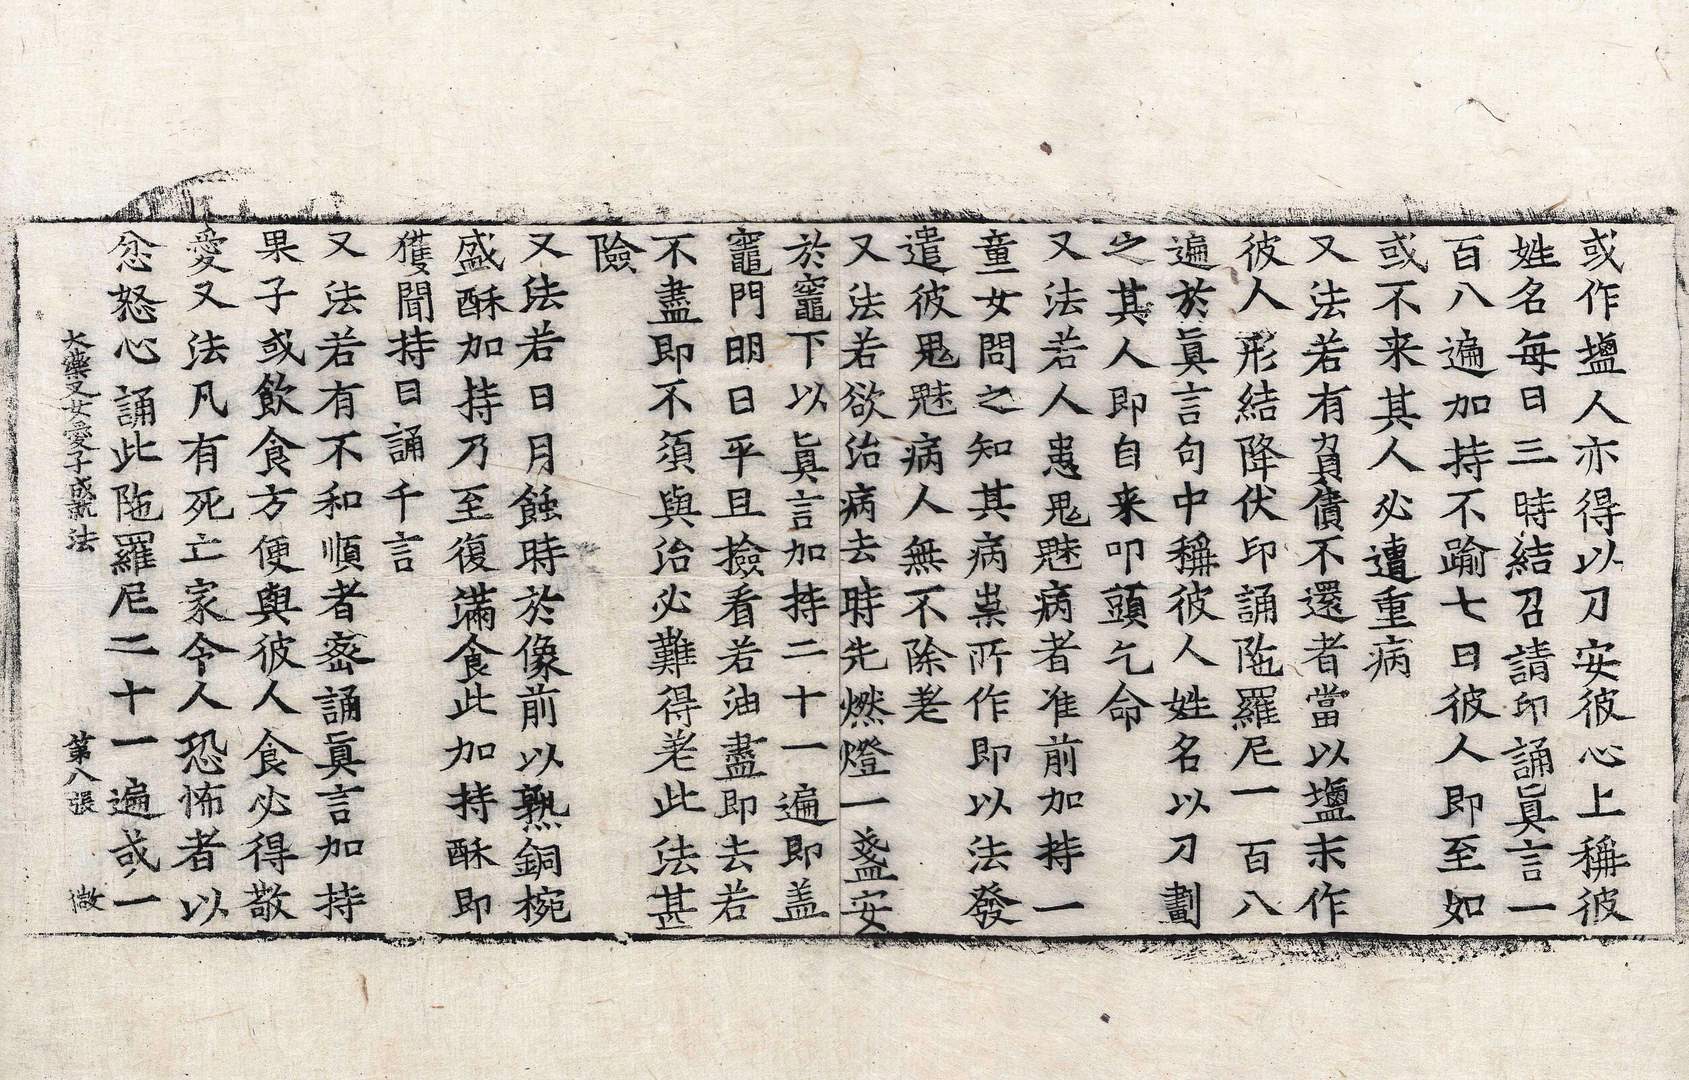 或作鹽人亦得以刀安彼心上稱彼
姓名每日三時結召請印誦眞言一
百八遍加持不踰七日彼人即至如
或不来其人必遭重病
又法若有負債不還者當以鹽末作
彼人形結降伏印誦陁羅尼一百八
遍於眞言句中稱彼人姓名以刀劃
之其人即自来叩頭乞命
又法若人患鬼魅病者准前加持一
童女問之知其病祟所作即以法發
遣彼鬼魅病人無不除老
又法若欲治病去時先燃燈一盞安
於竈下以眞言加持二十一遍即盖
竈門明日平旦撿看若油盡即去若
不盡即不須與治必難得老此法甚
險
又法若日月蝕時於像前以熟銅椀
盛酥加持乃至復滿食此加持酥即
獲聞持日誦千言
又法若有不和順者密誦眞言加持
果子或飲食方便與彼人食必得敬
愛又法凡有死亡家令人恐怖者以
忿怒心誦此陁羅尼二十一遍或一
大藥叉女愛子成就法　第八張　微